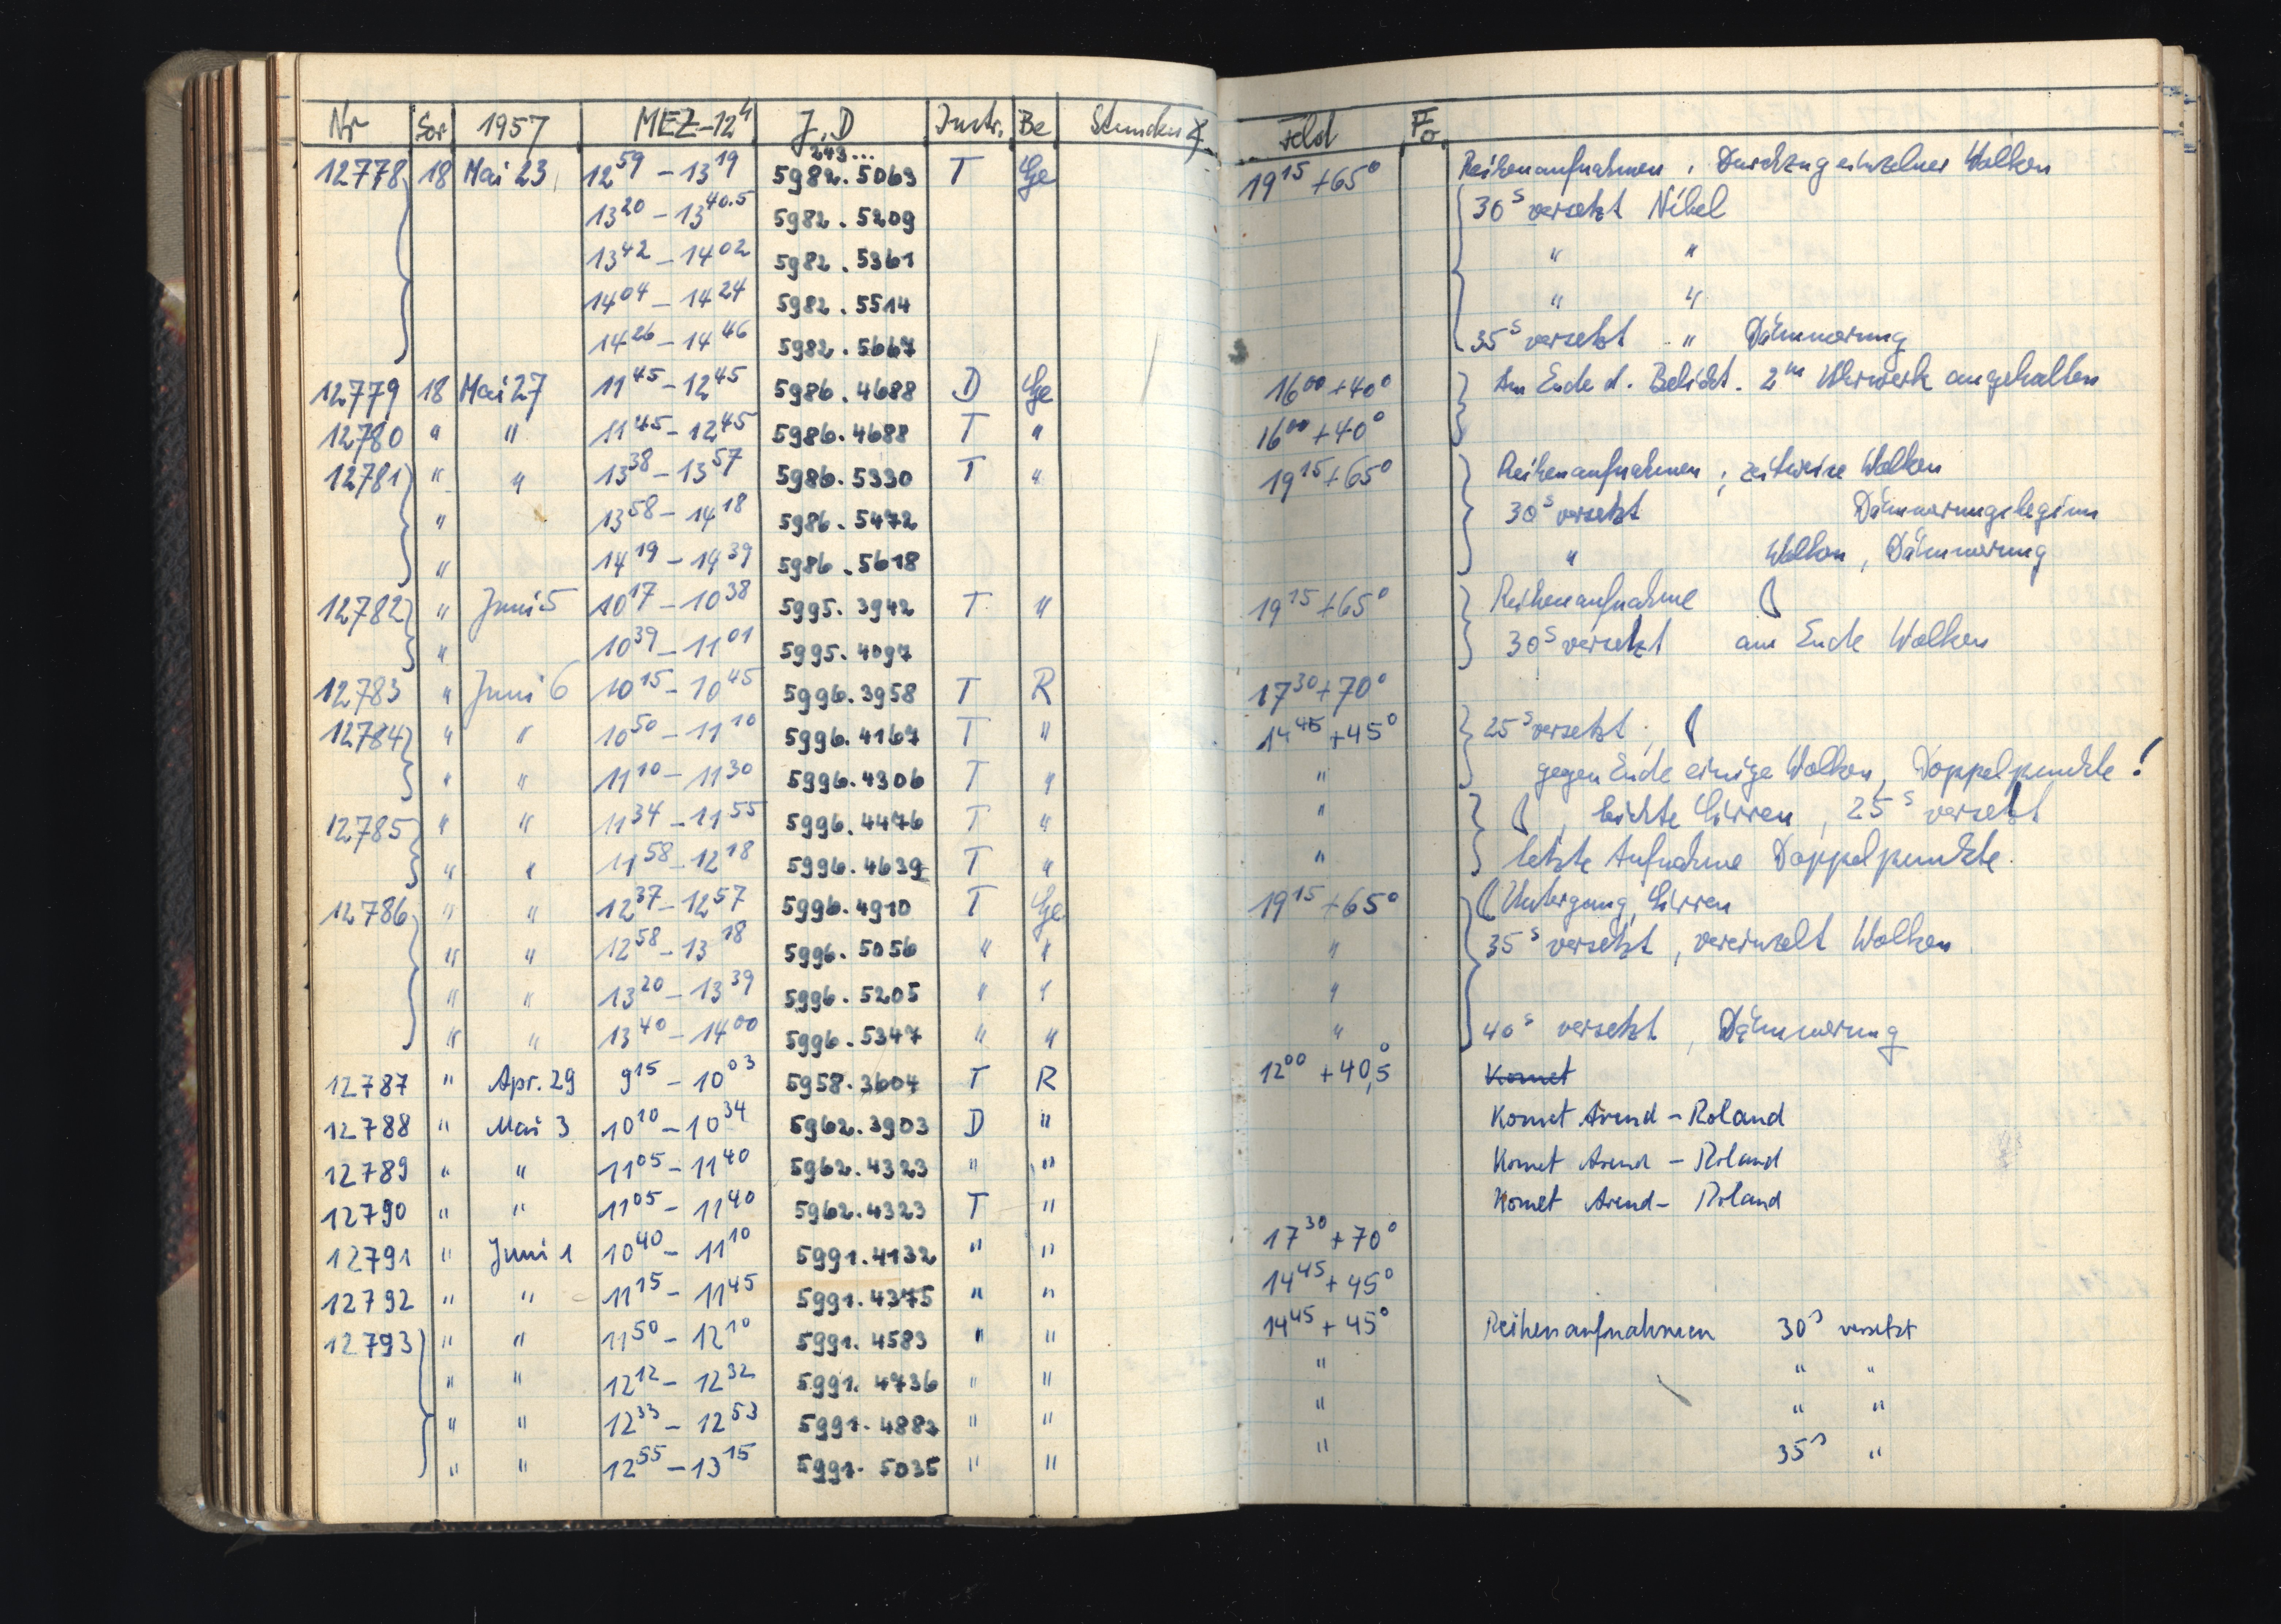 Nr Ser 1957 MEZ-12h J.D Instr. Be Stunden∢ Feld Fo
243...
12778 18 Mai 23 12 59 – 13 19 5982.5063 T Ge 19 15 +65° Reihenaufnahmen, Durchzug einzelner Wolken
13 20 – 13 40.5 5982.5209 30 s versetzt Nebel
13 42 – 14 02 5982.5361 " "
14 04 – 14 24 5982.5514 " "
14 26 – 14 46 5982.5667 35 s versetzt " Dämmerung
12779 18 Mai 27 11 45 – 12 45 5986.4688 D Ge 16 00 +40° Am Ende d. Belicht. 2 m Uhrwerk angehalten
12780 " " 11 45 – 12 45 5986.4688 T " 16 00 +40°
12781 " " 13 38 – 13 57 5986.5330 T " 19 15 +65° Reihenaufnahmen; zeitweise Wolken
" 13 58 – 14 18 5986.5472 30 s versetzt Dämmerungsbeginn
" 14 19 – 14 39 5986.5618 " Wolken, Dämmerung
12782 " Juni 5 10 17 – 10 38 5995.3942 T " 19 15 +65° Reihenaufnahme ☾
" 10 39 – 11 01 5995.4097 30 s versetzt am Ende Wolken
12783 " Juni 6 10 15 – 10 45 5996.3958 T R 17 30 +70°
12784 " " 10 50 – 11 10 5996.4167 T " 14 45 +45° 25 s versetzt; ☾
" " 11 10 – 11 30 5996.4306 T " " gegen Ende einige Wolken, Doppelpunkte!
12785 " " 11 34 – 11 55 5996.4476 T " " ☾, leichte Cirren, 25 s versetzt
" " 11 58 – 12 18 5996.4639 T " " letzte Aufnahme Doppelpunkte.
12786 " " 12 37 – 12 57 5996.4910 T Ge 19 15 +65° ☾ Untergang, Cirren
" " 12 58 – 13 18 5996.5056 " " " 35 s versetzt, vereinzelt Wolken
" " 13 20 – 13 39 5996.5205 " " "
" " 13 40 – 14 00 5996.5347 " " " 40 s versetzt, Dämmerung
12787 " Apr. 29 9 15 – 10 03 5958.3604 T R 12 00 +40,5° Komet
12788 " Mai 3 10 10 – 10 34 5962.3903 D " Komet Arend – Roland
12789 " " 11 05 – 11 40 5962.4323 " " Komet Arend – Roland
12790 " " 11 05 – 11 40 5962.4323 T " Komet Arend – Roland
12791 " Juni 1 10 40 – 11 10 5991.4132 " " 17 30 +70°
12792 " " 11 15 – 11 45 5991.4375 " " 14 45 +45°
12793 " " 11 50 – 12 10 5991.4583 " " 14 45 +45° Reihenaufnahmen 30 s versetzt
" " 12 12 – 12 32 5991.4736 " " " " "
" " 12 33 – 12 53 5991.4882 " " " " "
" " 12 55 – 13 15 5991.5035 " " " 35 s "